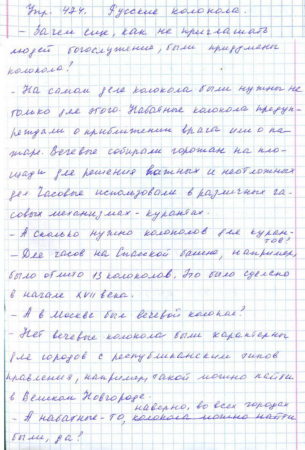 Упр. 424. Русские колокола.
- Зачем еще, как не приглашать
людей богослужение, были придуманы
колокола?
- На самом деле колокола были нужны не
только для этого. Набатные колокола предуп-
реждали о приближении врага или о по-
жаре. Вечевые собирали горожан на пло-
щади для решения важных и неотложных
дел. Часовые использовали в различных ча-
совых механизмах - курантах.
- А сколько нужно колоколов для куран-
тов?
- Для часов на Спасской башне, например,
было отлито 13 колоколов. Это было сделано
в начале XVII века.
- А в Москве был вечевой колокол?
- Нет вечевые колокола были характерны
для городов с республиканским типов
правления, например, такой можно найти
в Великом Новгороде.
- А набатные-то, наверно, во всех городах
колокола можно найти
были, да?